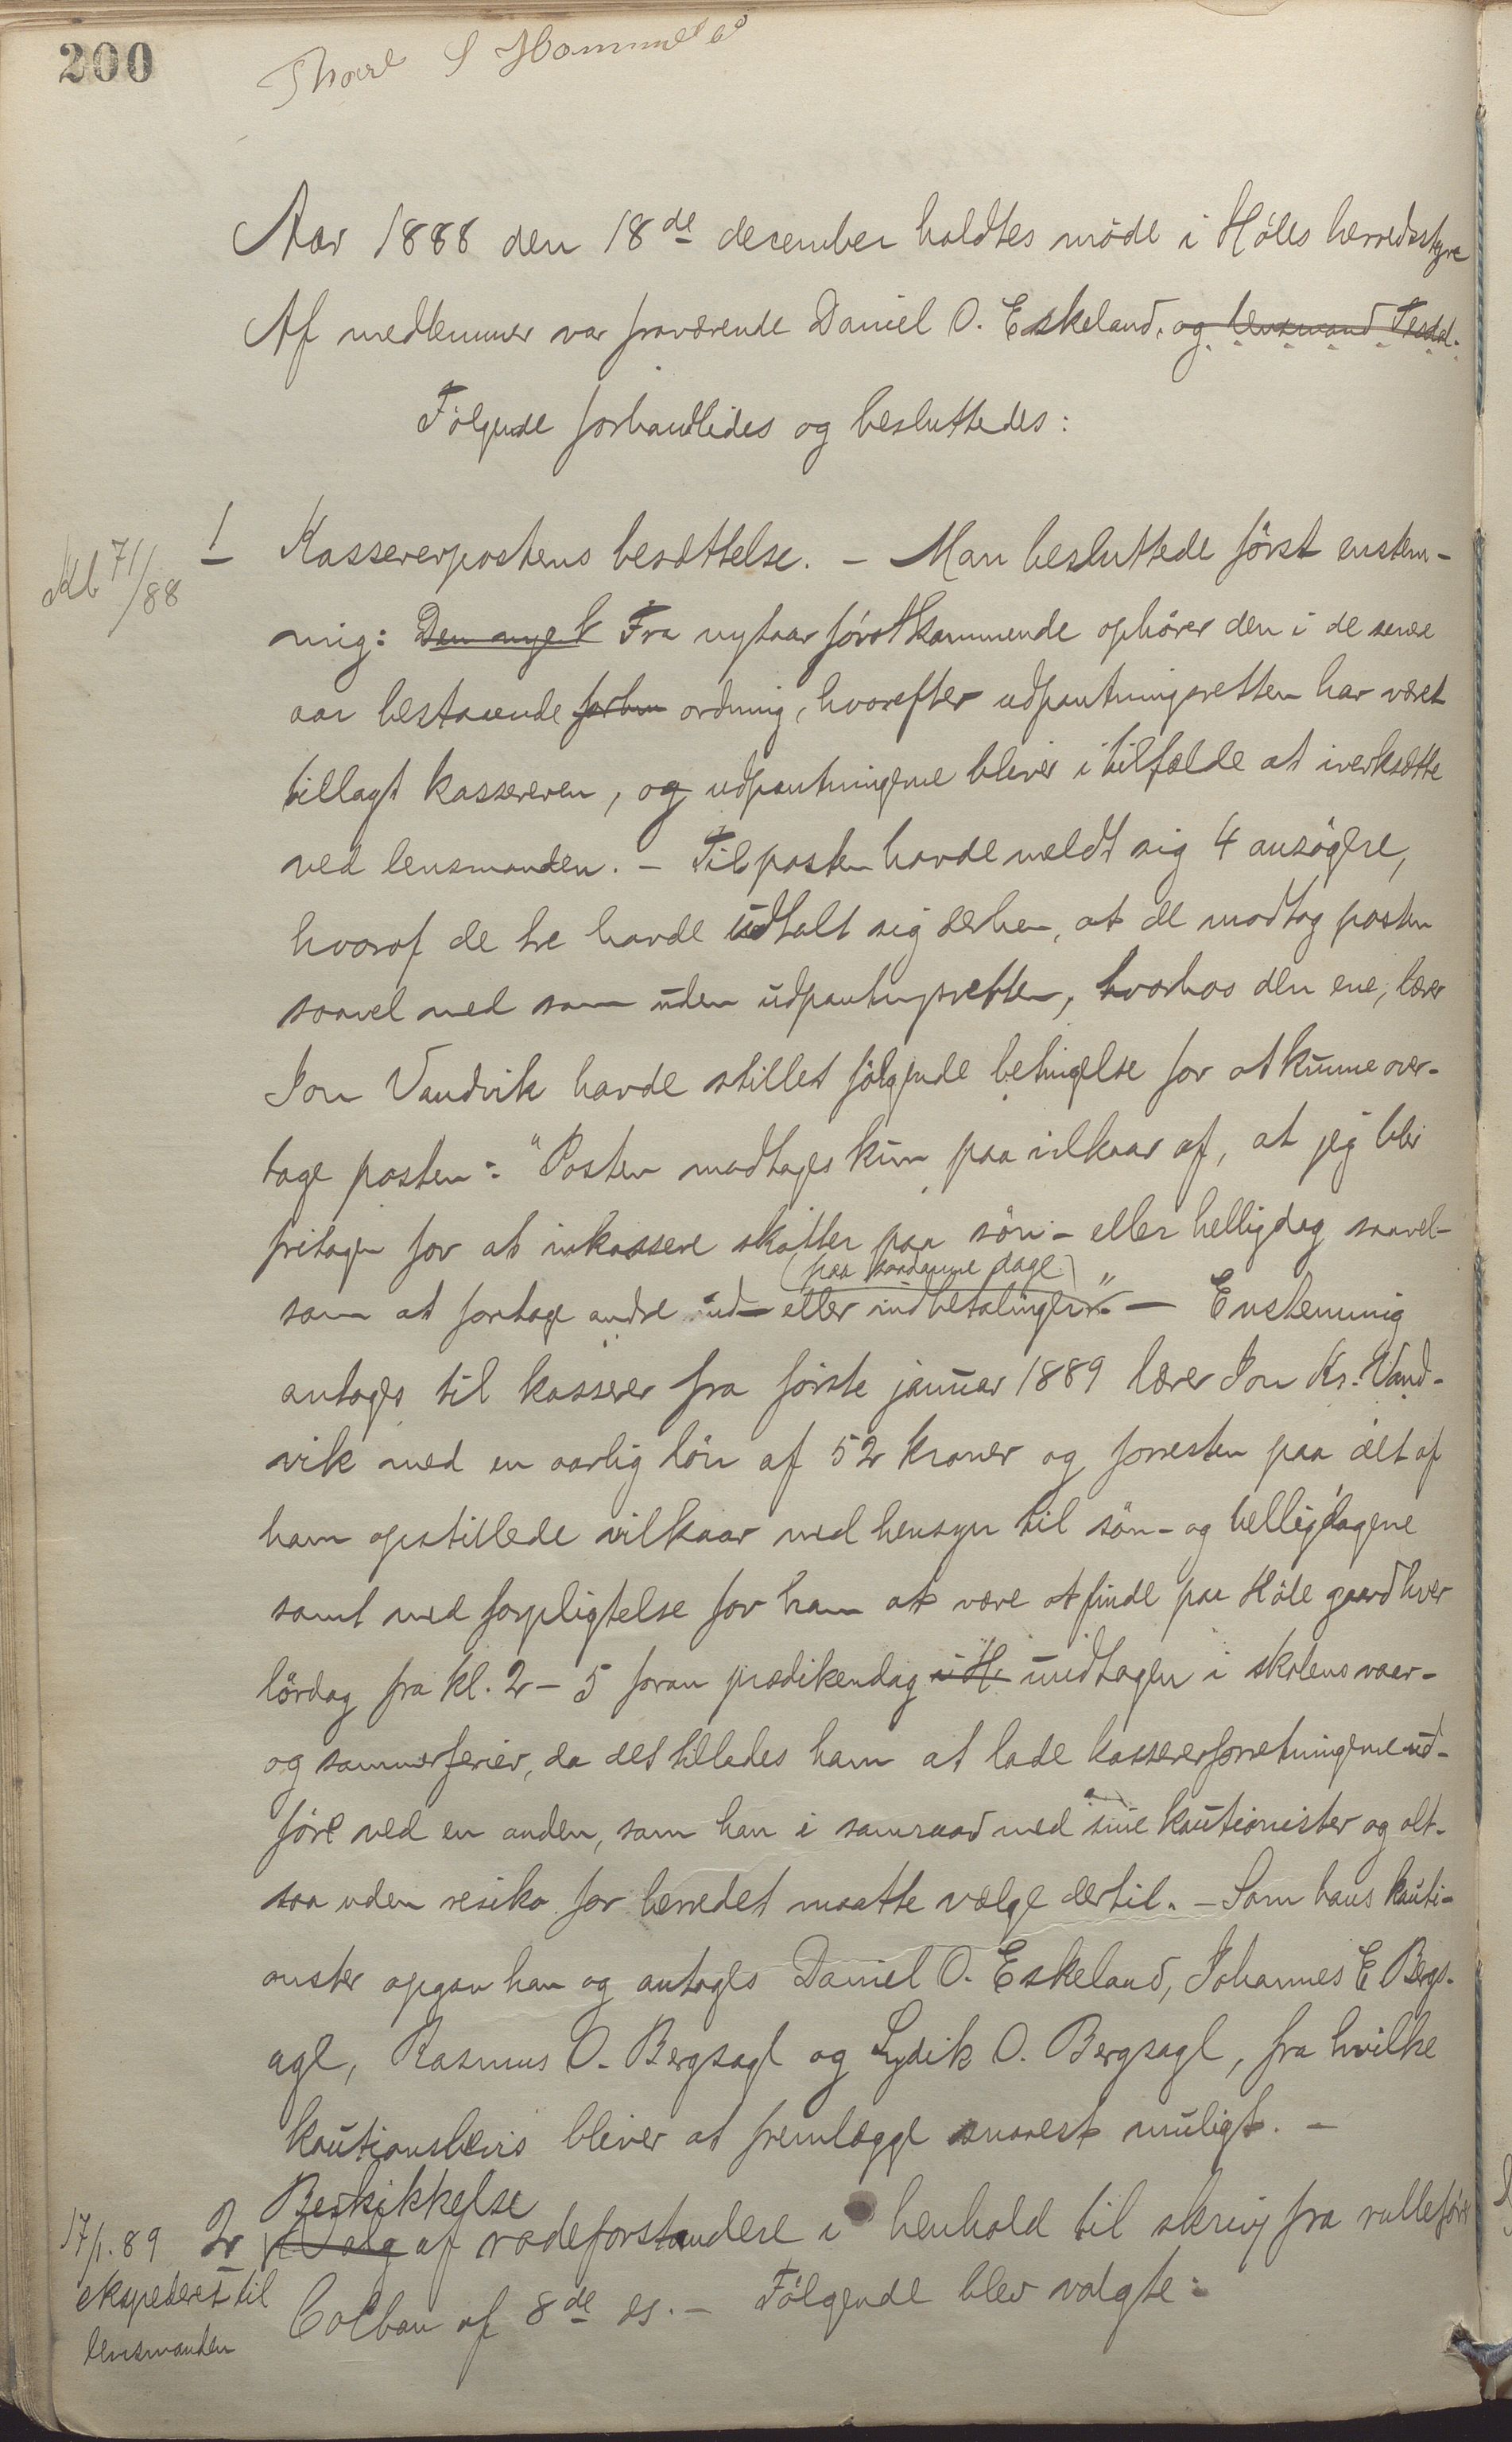 200
Aar 1888 den 18de december holdtes møde i Høles herredsstyre
Af medlemmer var fraværende Daniel O. Eskeland. og lensmand Tesdal.
Følgende forhandledes og besluttedes:
Kb 71/88
1 Kassererpostens besættelse. – Man besluttede først enstem-
mig: Den nye k Fra nytaar førstkommende ophører den i de senere
aar bestaaende ordning, hvorefter udpantningsretten har været
tillagt kassereren, og udpantningerne bliver i tilfælde at iverksætte
ved lensmanden. – Til posten havde meldt sig 4 ansøgere,
hvoraf de tre havde udtalt sig derhen, at de modtog posten
saavel med som uden udpantningsretten, hvorhos den ene, lærer
Jon Vandvik havde stillet følgende betingelse for at kunne over-
tage posten: "Posten modtages kun paa vilkaar af, at jeg blir
fritagen for at inkassere skatter paa søn- eller helligdag saavel-
(paa saadanne dage)
som at foretage andre ud- eller indbetalinger." – Enstemmig
antoges til kasserer fra første januar 1889 lærer Jon Kr. Vand-
vik med en aarlig løn af 52 kroner og forresten paa det af
ham opstillede vilkaar med hensyn til søn- og helligdagene
samt med forpligtelse for ham at være at finde paa Høle gaard hver
lørdag fra kl. 2 – 5 foran prædikendag i H. undtagen i skolens vaar-
og sommerferier, da det tillades ham at lade kassererforretningerne ud-
føre ved en anden, som han i samraad med sine kautionister og alt-
saa uden resiko for herredet maatte vælge dertil. – Som hans kauti-
onister opgav han og antoges Daniel O. Eskeland, Johannes E Bergs-
agl, Rasmus O. Bergsagl og Lydik O. Bergsagl, fra hvilke
kautionsbevis bliver at fremlægge snarest muligt. –
Beskikkelse
17/1. 89 2 Valg af rodeforstandere i henhold til skriv fra rullefører
ekspederet til
Colban af 8de ds. – Følgende blev valgte:
lensmanden